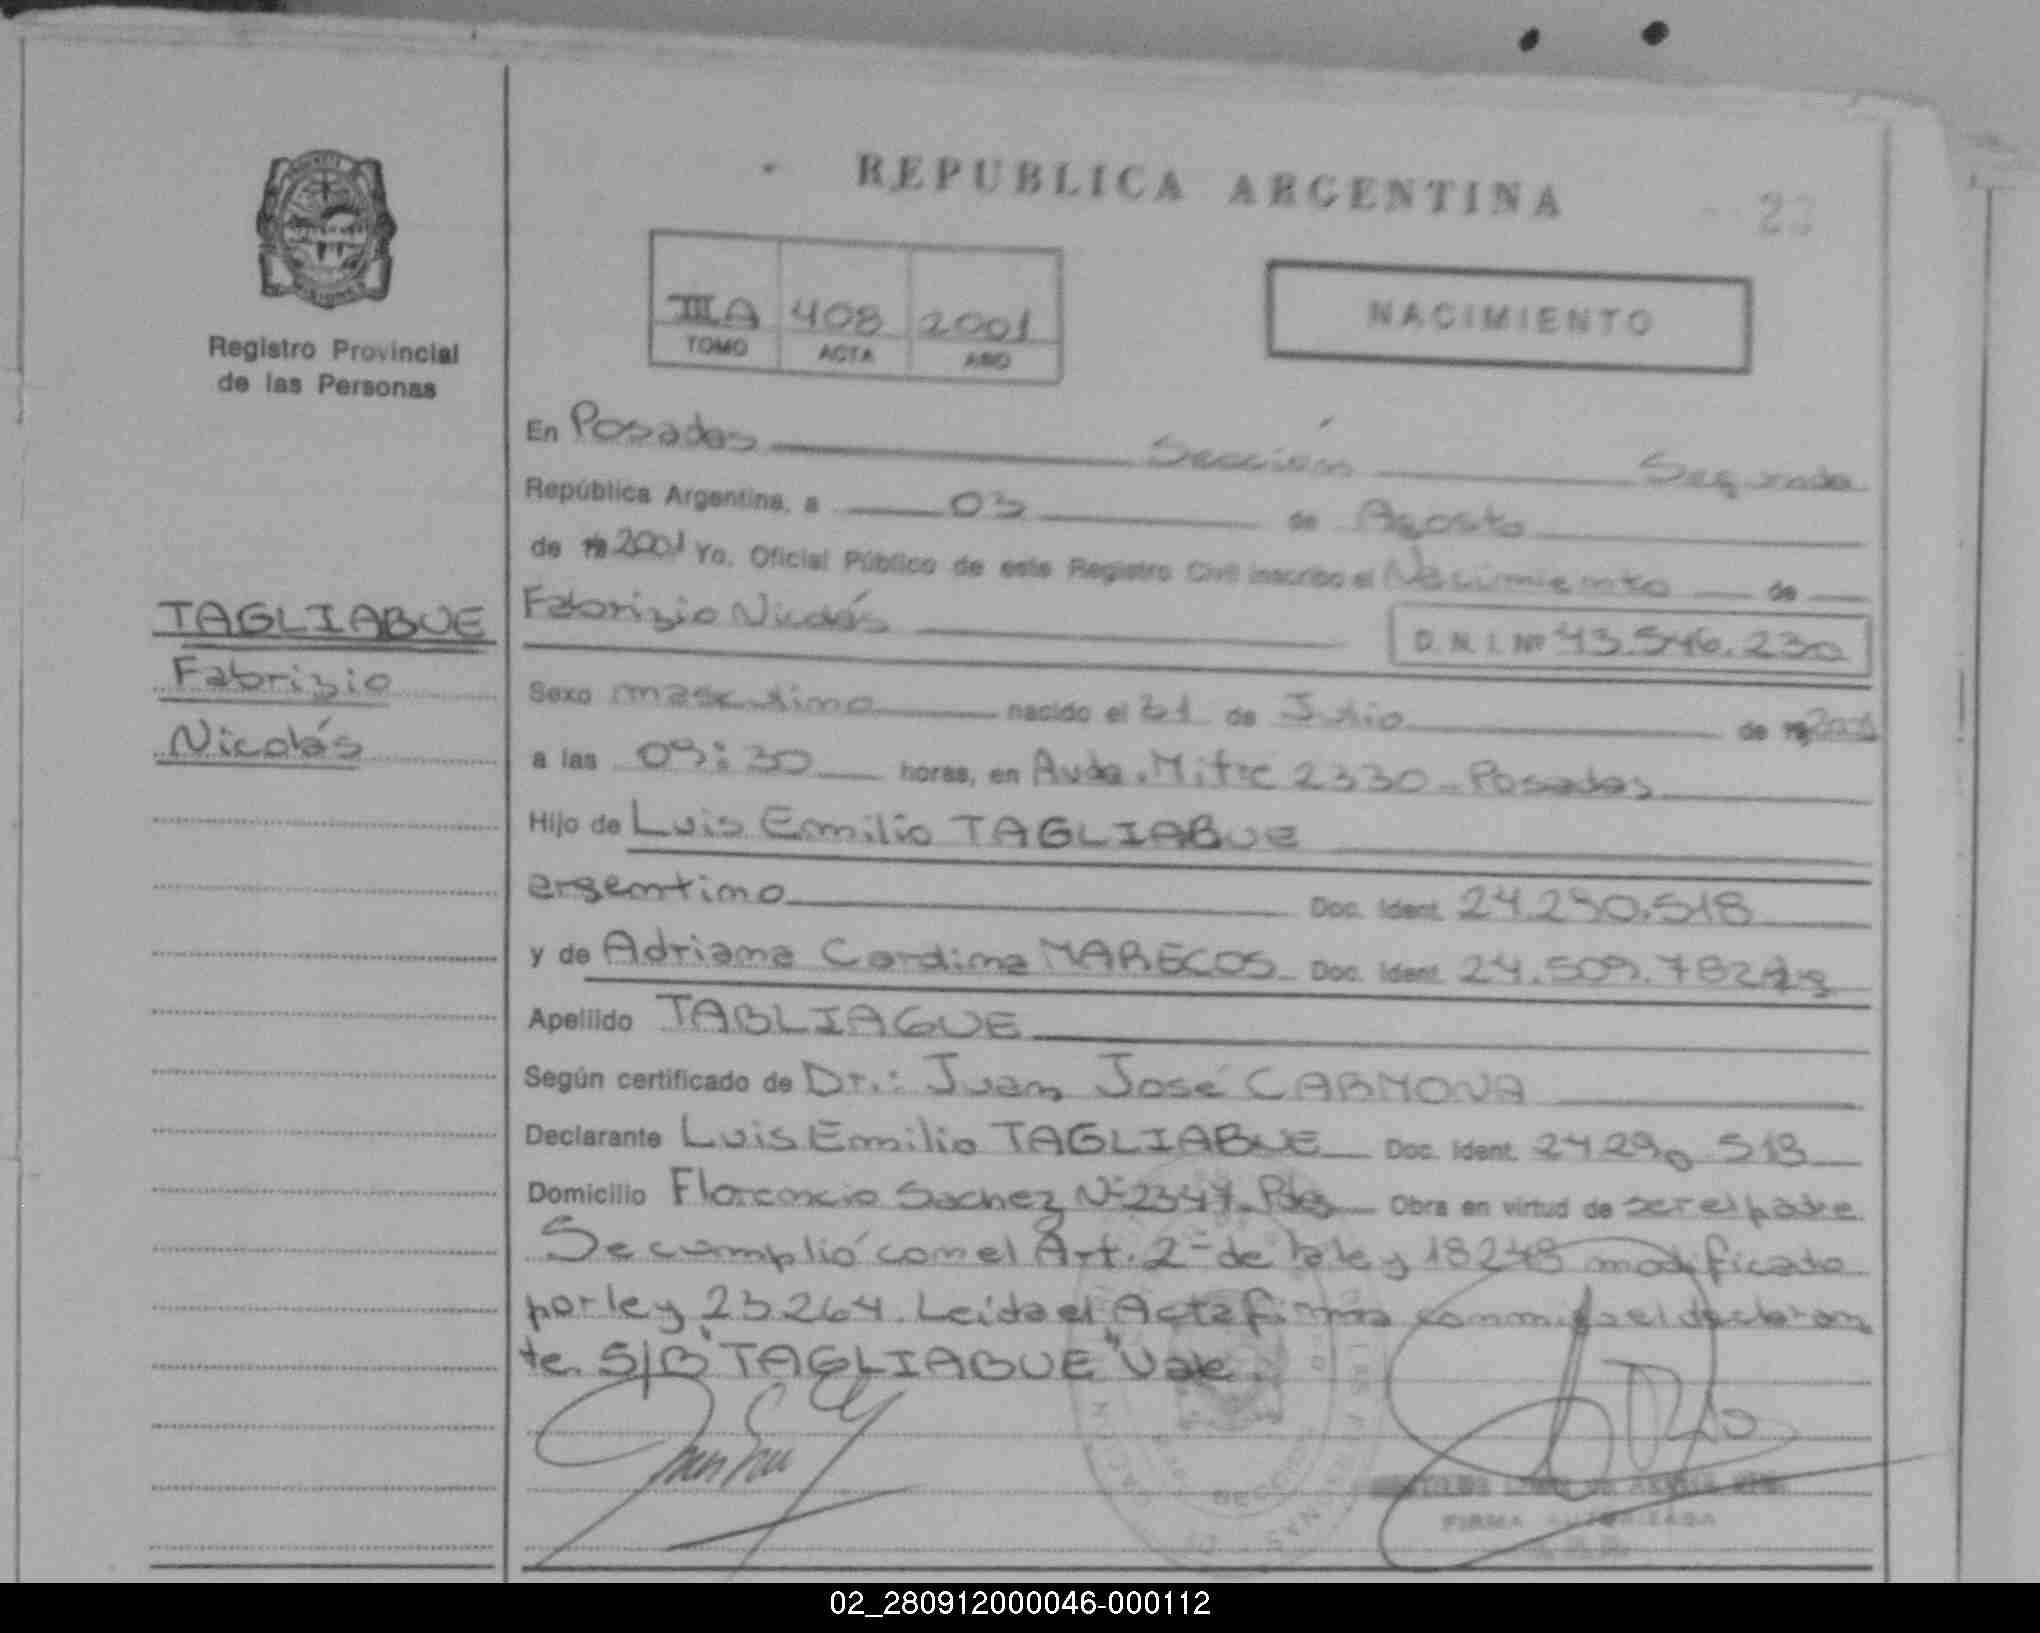 REPUBLICA ARGENTINA
23
Registro Provincial
de las Personas
IIIA 408 2001
TOMO ACTA AÑO
NACIMIENTO
TAGLIABUE
Fabrizio
Nicolás
En Posadas Sección Segunda
República Argentina, a 03 de Agosto
de 2001 Yo, Oficial Público de este Registro Civil inscribo el Nacimiento de
Fabrizio Nicolás D.N.I. Nº 43.546.230
Sexo masculino nacido el 31 de Julio de 2001
a las 09:30 horas, en Avda. Mitre 2330 - Posadas
Hijo de Luis Emilio TAGLIABUE
argentino Doc. Ident. 24.290.518
y de Adriana Cardina MARECOS Doc. Ident. 24.509.782
Apellido TABLIAGUE
Según certificado de Dr.: Juan José CARMONA
Declarante Luis Emilio TAGLIABUE Doc. Ident. 24290 518
Domicilio Florencio Sachez Nº 2347 Pdas Obra en virtud de ser el padre
Se cumplió con el Art. 2º de la ley 18248 modificado
por ley 23.264. Leida el Acta firma conmigo el declaran
te. S/B "TAGLIABUE" Vale.
FIRMA AUTORIZADA
02_280912000046-000112